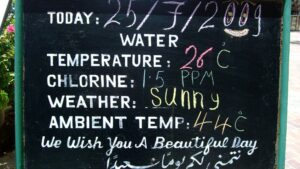 TODAY: 25/7/2009
WATER
TEMPERATURE: 26 °C
CHLORINE: 1.5 PPM
WEATHER: sunny
AMBIENT TEMP: 44 °C
We Wish You A Beautiful Day
نتمنى لكم يوماً سعيداً